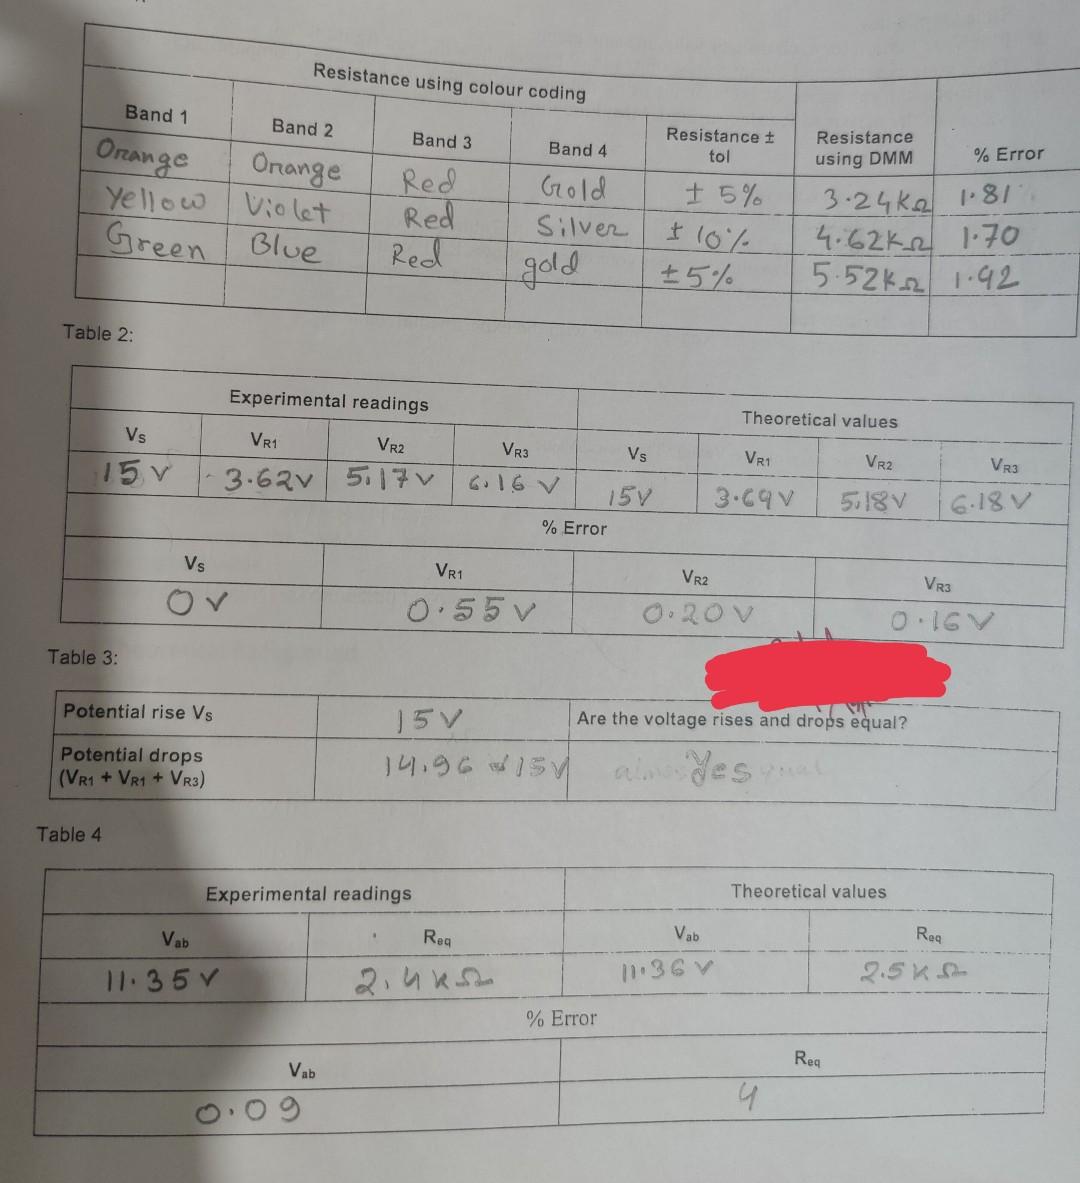 Resistance using colour coding
Band 1 Band 2 Band 3 Band 4 Resistance ± tol Resistance using DMM % Error
Orange Orange Red Gold ± 5% 3.24KΩ 1.81
Yellow Violet Red Silver ± 10% 4.62KΩ 1.70
Green Blue Red gold ±5% 5.52KΩ 1.42
Table 2:
Experimental readings Theoretical values
Vs VR1 VR2 VR3 Vs VR1 VR2 VR3
15 V 3.62V 5.17V 6.16 V 15V 3.64V 5.18V 6.18V
% Error
Vs VR1 VR2 VR3
0V 0.55V 0.20V 0.16V
Table 3:
Potential rise Vs 15V Are the voltage rises and drops equal?
Potential drops (VR1 + VR1 + VR3) 14.96 ≈ 15V Yes
Table 4
Experimental readings Theoretical values
Vab Req Vab Req
11.35V 2.4KΩ 11.36V 2.5KΩ
% Error
Vab Req
0.09 4